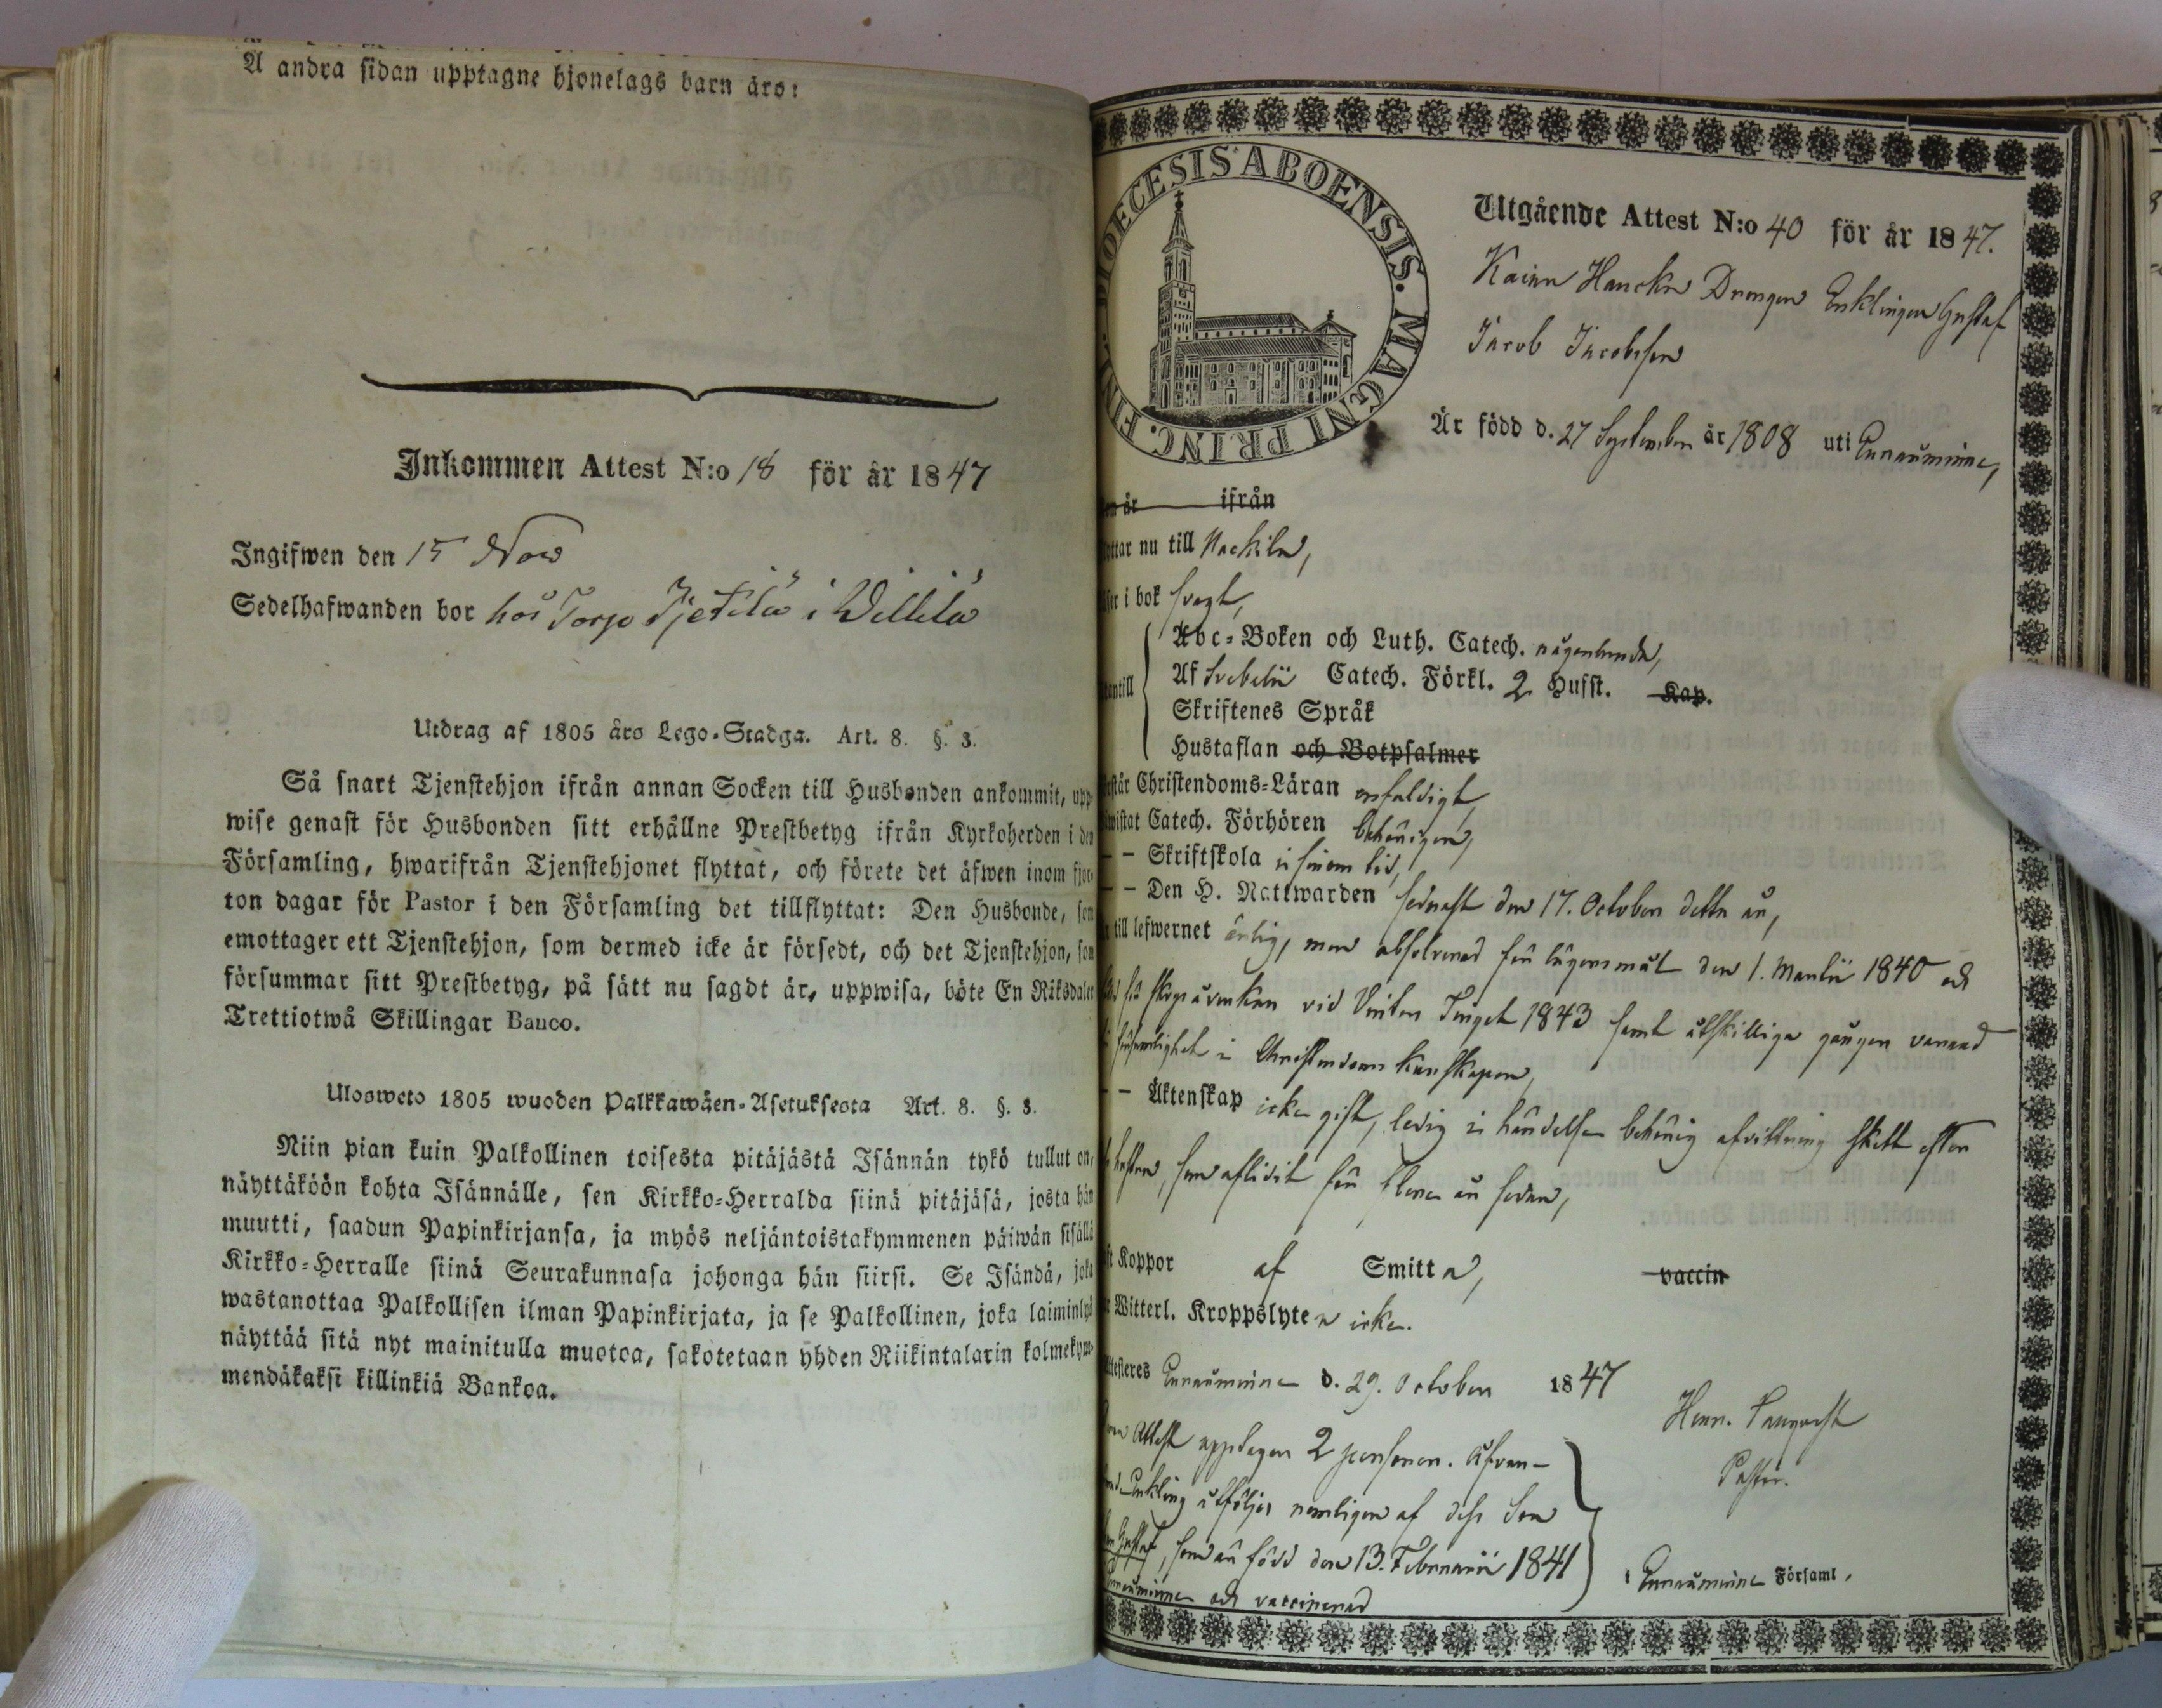 A andra sidan upptagne hjonelags barn äro:
Inkommen Attest N:o 18 för år 1847
Ingifwen den 15 Nov
Sedelhafwanden bor hos Torp i
Utdrag af 1805 års Lego-Stadga. Art. 8. §. 3.
Så snart Tjenstehjon ifrån annan Socken till Husbonden ankommit, upp-
wise genast för Husbonden sitt erhållne Prestbetyg ifrån Kyrkoherden i den
Församling, hwarifrån Tjenstehjonet flyttat, och förete det äfwen inom fjor-
ton dagar för Pastor i den Församling det tillflyttat: Den Husbonde, som
emottager ett Tjenstehjon, som dermed icke är försedt, och det Tjenstehjon, som
försummar sitt Prestbetyg, på sätt nu sagdt är, uppwisa, böte En Riksdaler
Trettiotwå Skillingar Banco.
Ulosweto 1805 wuoden Palkkawäen-Asetuksesta Art. 8. §. 3.
Niin pian kuin Palkollinen toisesta pitäjästä Isännän tykö tullut on,
näyttäköön kohta Isännälle, sen Kirkko-Herralda siinä pitäjäsä, josta hän
muutti, saadun Papinkirjansa, ja myös neljäntoistakymmenen päiwän sisällä
Kirkko-Herralle siinä Seurakunnasa johonga hän siirsi. Se Isändä, joka
wastanottaa Palkollisen ilman Papinkirjata, ja se Palkollinen, joka laiminlyö
näyttää sitä nyt mainitulla muotoa, sakotetaan yhden Riikintalarin kolmekym-
mendäkaksi killinkiä Bankoa.
DIOECESIS ABOENSIS. MAGNI PRINC. FINL.
Utgående Attest N:o 40 för år 1847.
Drengen Enklingen Gustaf
Jacob Jacobsson
Är född d. 27 September år 1808 uti Eurauminne,
är ifrån
nu till Nackila,
i bok svagt,
Abc-Boken och Luth. Catech. någorlunda,
Af Svebelii Catech. Förkl. 2 Hufst. Kap.
Skriftenes Språk
Hustaflan och Botpsalmer
Christendoms-Läran enfaldigt,
Catech. Förhören behörigen,
- - Skriftskola i sinom tid,
- - Den H. Nattwarden sednast den 17. October detta år,
till lefwernet ärlig, men absolverad för lägersmål den 1. Martii 1840 och
för skogsåverkan vid Vinter Tinget 1843 samt åtskilliga gånger varnad
i Christendoms kunskapen,
- - Äktenskap icke gift, ledig i händelse behörig afvittring skett efter
som aflidit för flera år sedan,
Koppor af Smitta, vaccin
Witterl. Kroppslyten icke.
Eurauminne d. 29. October 1847
Pastor.
Attest upptager 2 personer.
Enkling åtföljes nemligen af dess Son
Gustaf, som är född den 13. Februarii 1841
Eurauminne och vaccinerad
i Eurauminne Församl.